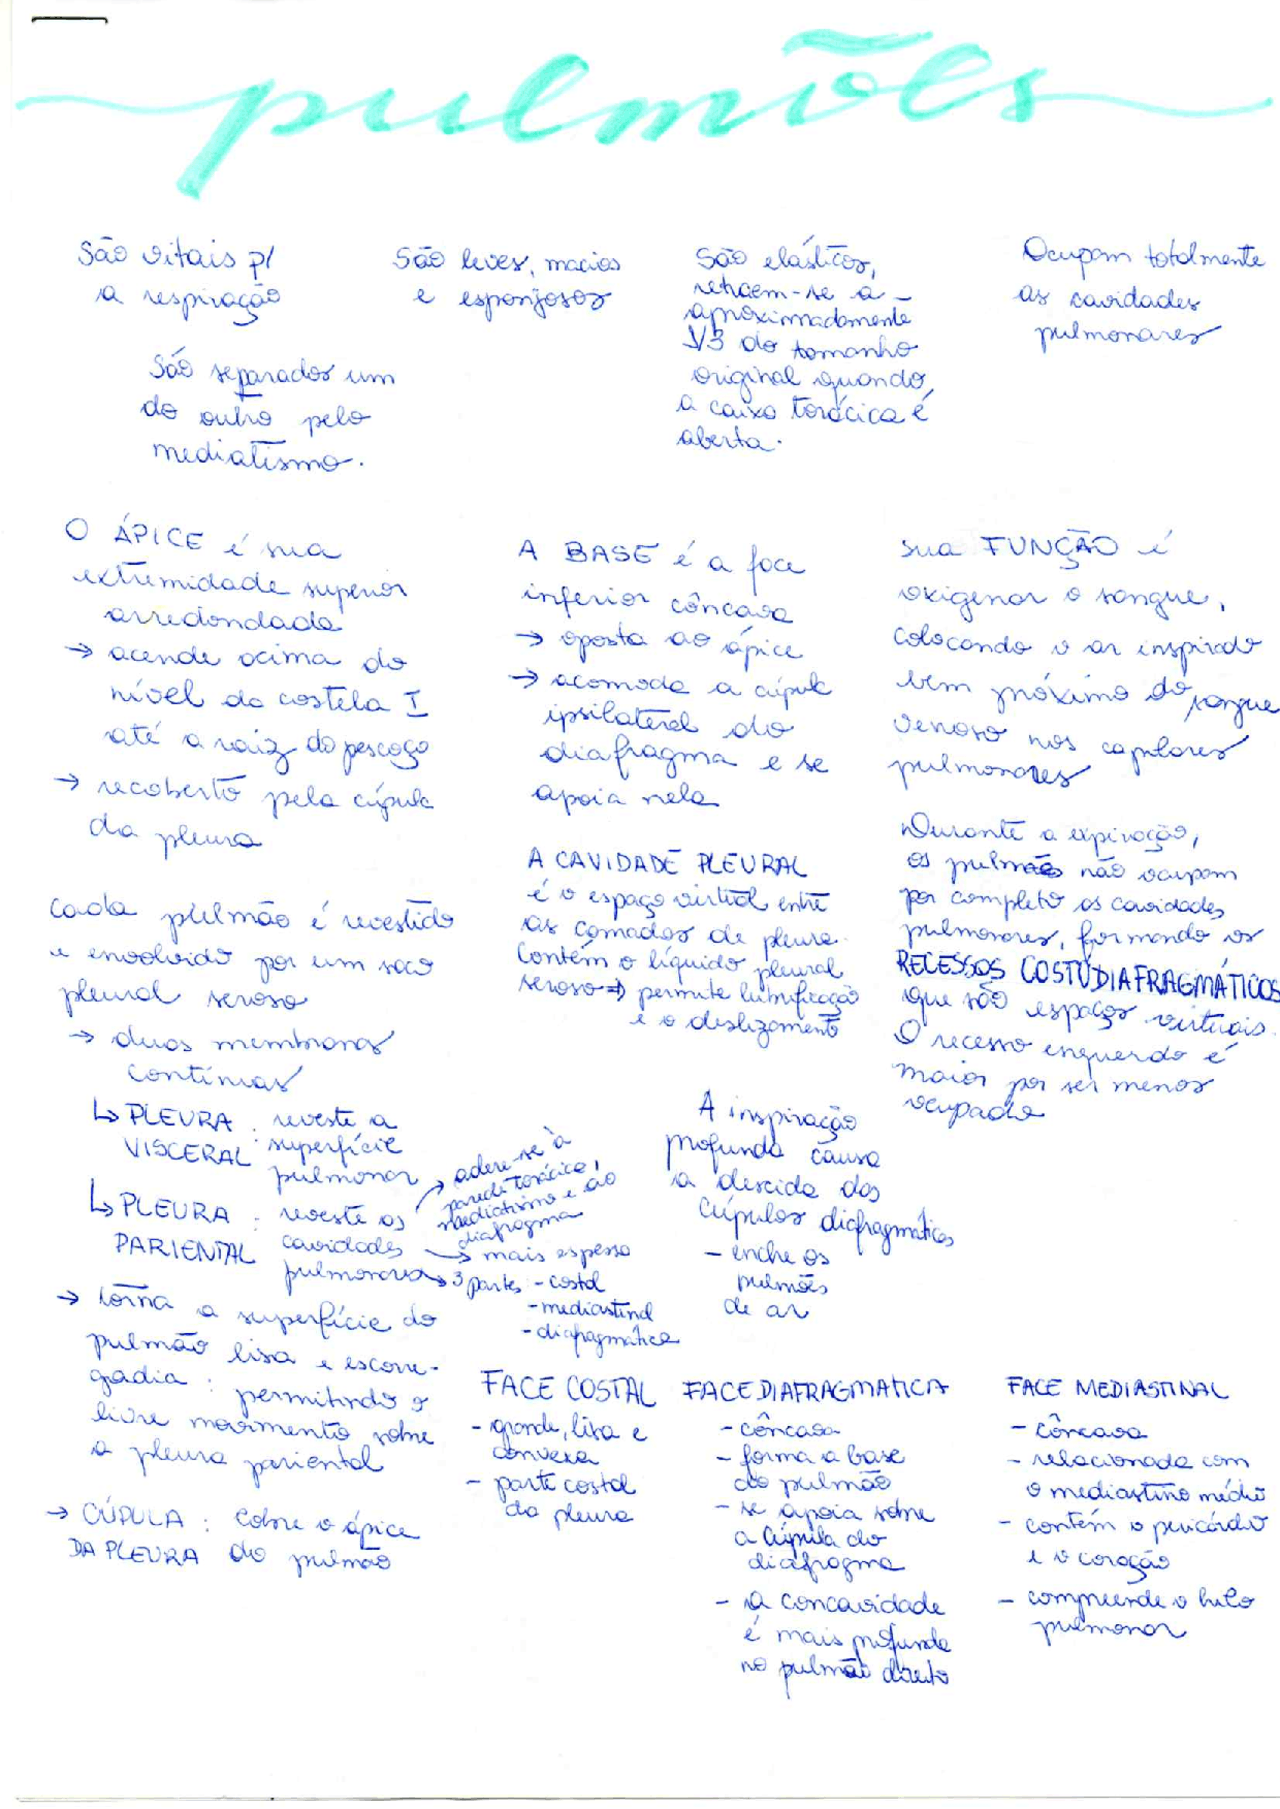 pulmões
São vitais p/
a respiração
São separados um
do outro pelo
mediatismo.
São leves, macios
e esponjosos
São elásticos,
retraem-se a
aproximadamente
1/3 do tamanho
original quando
a caixa torácica é
aberta.
Ocupam totalmente
as cavidades
pulmonares
O ÁPICE é sua
extremidade superior
arredondada
→ acende acima do
nível da costela I
até a raiz do pescoço
→ recoberto pela cúpula
da pleura
cada pulmão é revestido
e envolvido por um saco
pleural seroso
→ duas membranas
contínuas
↳ PLEURA : reveste a
VISCERAL superfície
pulmonar
↳ PLEURA : reveste as
PARIENTAL cavidades
pulmonares
→ adere-se à
parede torácica,
mediatismo e ao
diafragma
→ mais espessa
→ 3 partes - costal
- mediastinal
- diafragmática
→ torna a superfície do
pulmão lisa e escorre-
gadia : permitindo o
livre movimento sobre
a pleura pariental
→ CÚPULA : cobre o ápice
DA PLEURA do pulmão
A BASE é a face
inferior côncava
→ oposta ao ápice
→ acomoda a cúpula
ipsilateral do
diafragma e se
apoia nela
A CAVIDADE PLEURAL
é o espaço virtual entre
as camadas de pleura.
Contém o líquido pleural
seroso ⇒ permite lubrificação
e o deslizamento
sua FUNÇÃO é
oxigenar o sangue,
colocando o ar inspirado
bem próximo do sangue
venoso nos capilares
pulmonares
Durante a expiração,
os pulmões não ocupam
por completo as cavidades
pulmonares, formando os
RECESSOS COSTUDIAFRAGMÁTICOS
que são espaços virtuais.
O recesso esquerdo é
maior por ser menos
ocupado
A inspiração
profunda causa
a descida das
cúpulas diafragmáticas
- enche os
pulmões
de ar
FACE COSTAL
- grande, lisa e
convexa
- parte costal
da pleura
FACE DIAFRAGMATICA
- côncava
- forma a base
do pulmão
- se apoia sobre
a cúpula do
diafragma
- a concavidade
é mais profunda
no pulmão direito
FACE MEDIASTINAL
- côncava
- relacionada com
o mediastino médio
- contém o pericárdio
e o coração
- compreende o hilo
pulmonar